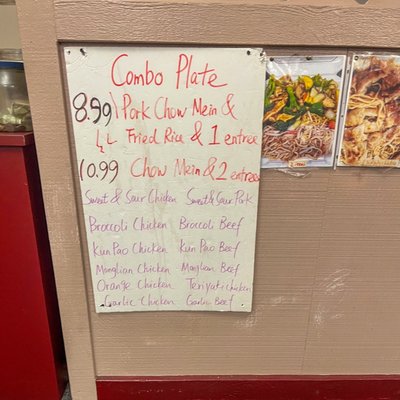 Combo Plate
8.99 Pork Chow Mein &
Fried Rice & 1 entree
10.99 Chow Mein & 2 entrees
Sweet & Sour Chicken Sweet & Sour Pork
Broccoli Chicken Broccoli Beef
Kun Pao Chicken Kun Pao Beef
Monglian Chicken Monglian Beef
Orange Chicken Teriyati Chicken
Garlic Chicken Garlic Beef